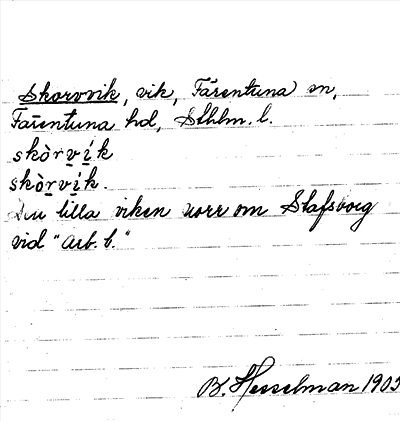 Skorvvik, vik, Färentuna sn,
Färentuna hd, Sthlm. l.
skòrvik
skòrvik.
Den lilla viken norr om Stafsborg
vid "Arb. b."
B. Hesselman 1905